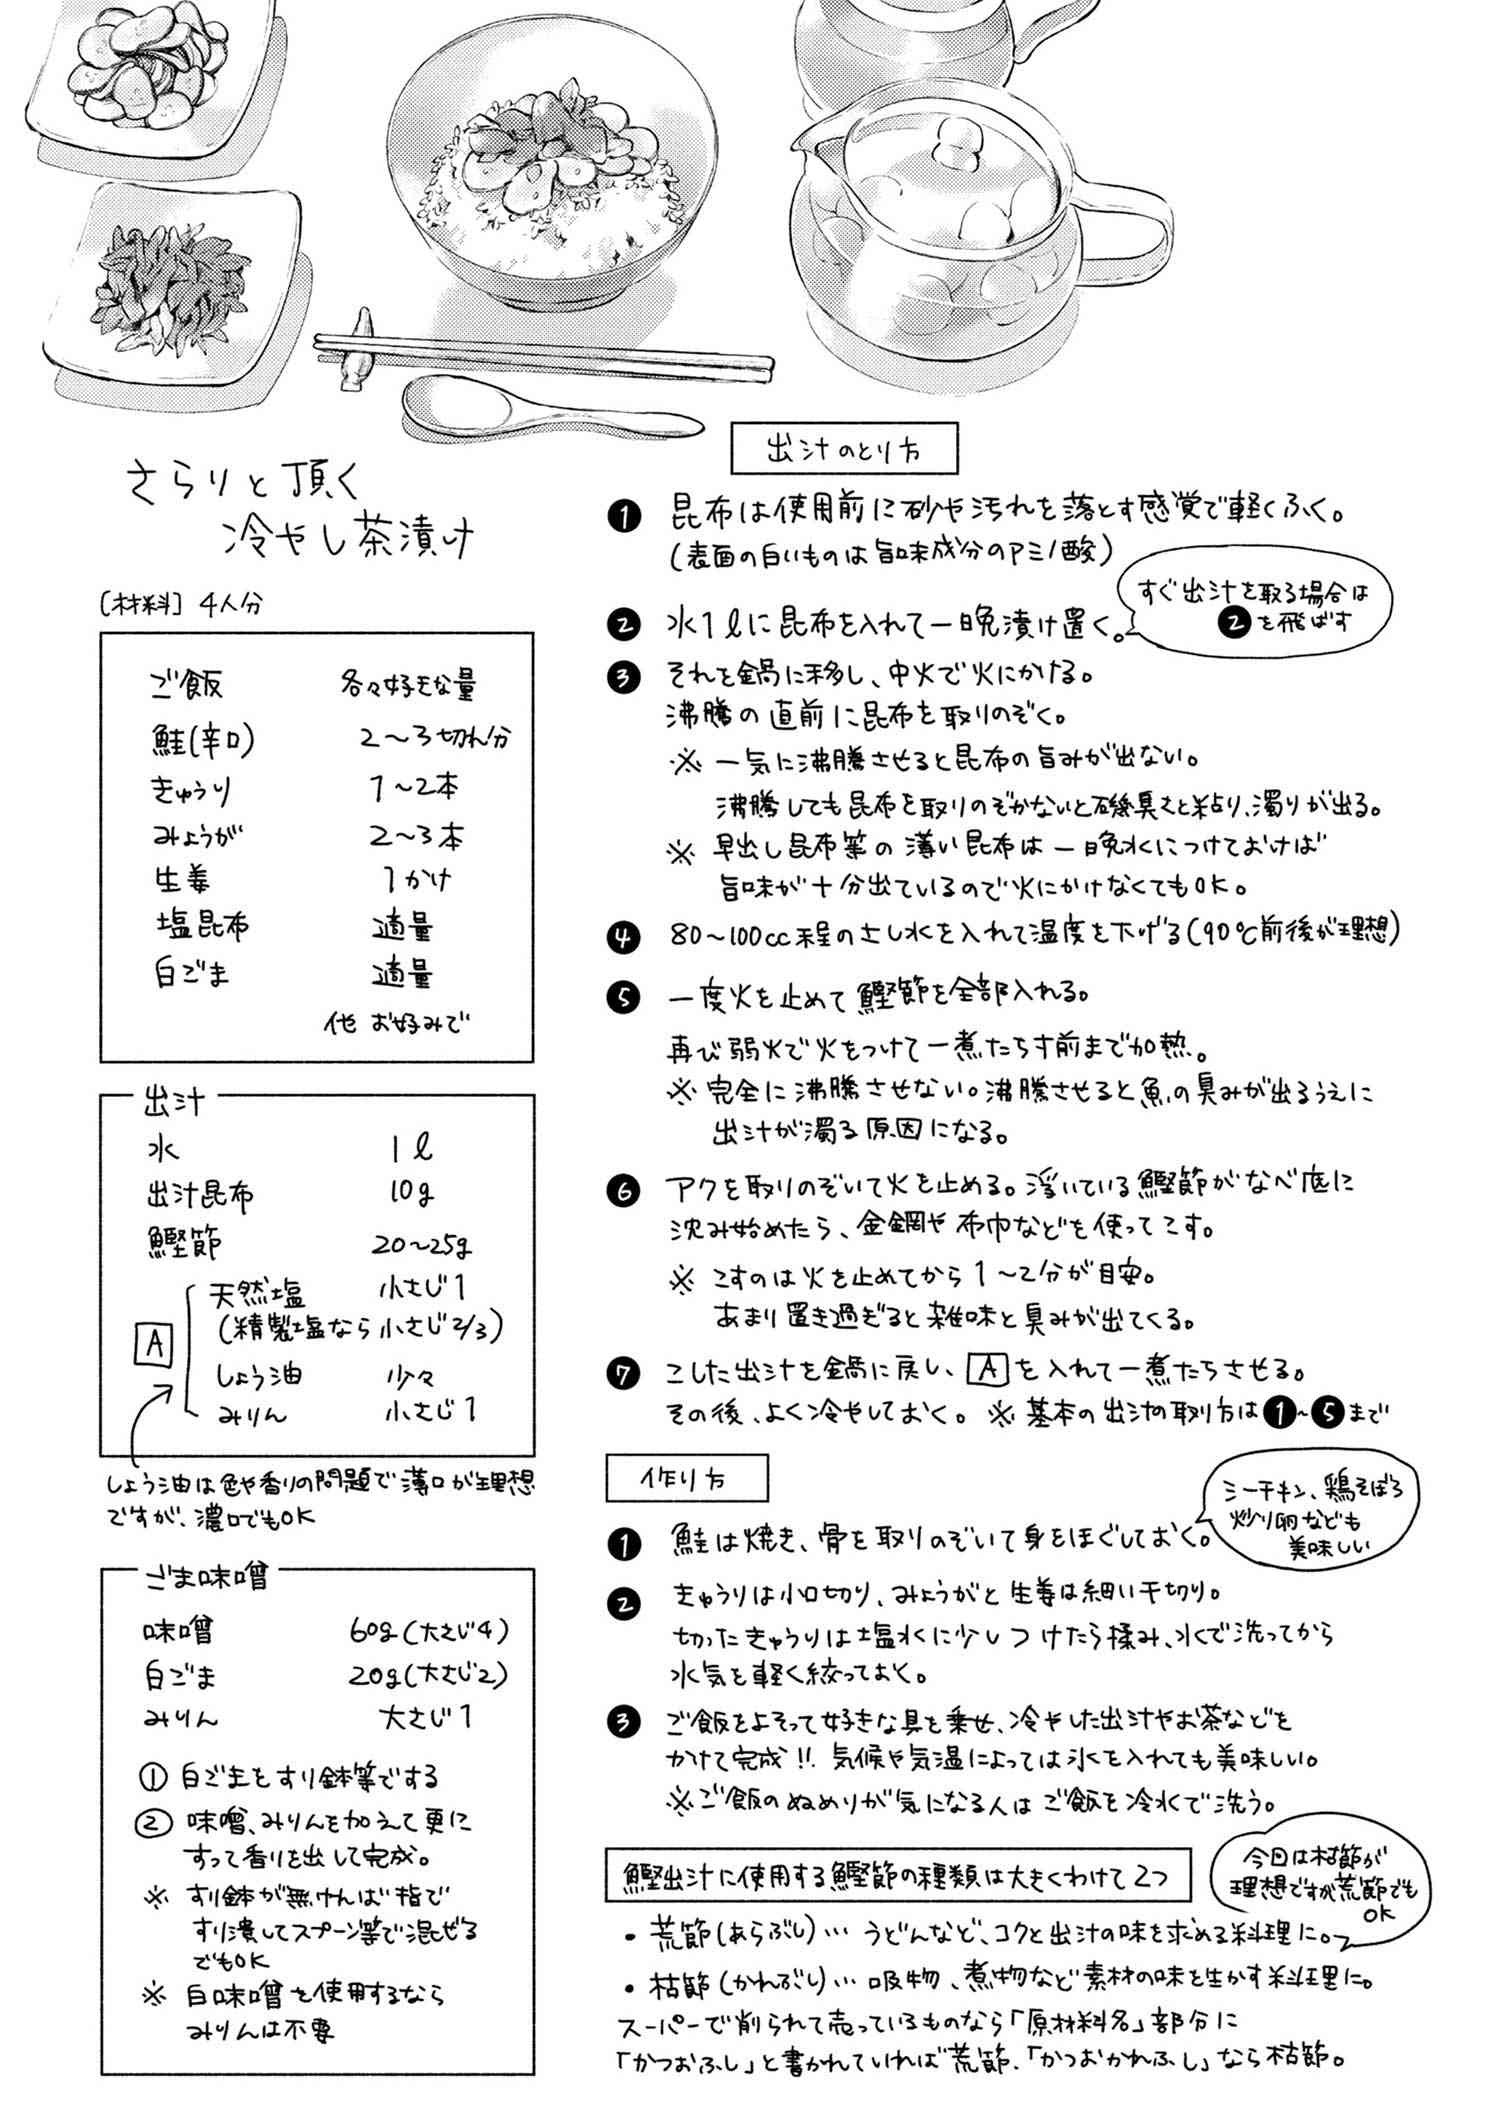 さらりと頂く
冷やし茶漬け
[材料] 4人分
ご飯 各々好きな量
鮭(辛口) 2〜3切れ分
きゅうり 1〜2本
みょうが 2〜3本
生姜 1かけ
塩昆布 適量
白ごま 適量
他 お好みで
出汁
水 1ℓ
出汁昆布 10g
鰹節 20〜25g
A
天然塩 小さじ1
(精製塩なら小さじ2/3)
しょう油 少々
みりん 小さじ1
しょう油は色や香りの問題で薄口が理想
ですが、濃口でもOK
ごま味噌
味噌 60g(大さじ4)
白ごま 20g(大さじ2)
みりん 大さじ1
① 白ごまをすり鉢等でする
② 味噌、みりんを加えて更に
すって香りを出して完成。
※ すり鉢が無ければ指で
すり潰してスプーン等で混ぜる
でもOK
※ 白味噌を使用するなら
みりんは不要
出汁のとり方
❶ 昆布は使用前に砂や汚れを落とす感覚で軽くふく。
(表面の白いものは旨味成分のアミノ酸)
❷ 水1ℓに昆布を入れて一晩漬け置く。
すぐ出汁を取る場合は
❷を飛ばす
❸ それを鍋に移し、中火で火にかける。
沸騰の直前に昆布を取りのぞく。
※ 一気に沸騰させると昆布の旨みが出ない。
沸騰しても昆布を取りのぞかないと磯臭さと粘り、濁りが出る。
※ 早出し昆布等の薄い昆布は一晩水につけておけば
旨味が十分出ているので火にかけなくてもOK。
❹ 80〜100cc程のさし水を入れて温度を下げる(90℃前後が理想)
❺ 一度火を止めて鰹節を全部入れる。
再び弱火で火をつけて一煮たちす前まで加熱。
※ 完全に沸騰させない。沸騰させると魚の臭みが出るうえに
出汁が濁る原因になる。
❻ アクを取りのぞいて火を止める。浮いている鰹節がなべ底に
沈み始めたら、金網や布巾などを使ってこす。
※ こすのは火を止めてから1〜2分が目安。
あまり置き過ぎると雑味と臭みが出てくる。
❼ こした出汁を鍋に戻し、Aを入れて一煮たちさせる。
その後、よく冷やしておく。 ※ 基本の出汁の取り方は❶〜❺まで
作り方
❶ 鮭は焼き、骨を取りのぞいて身をほぐしておく。
シーチキン、鶏そぼろ
炒り卵なども
美味しい
❷ きゅうりは小口切り、みょうがと生姜は細い千切り。
切ったきゅうりは塩水に少しつけたら揉み、水で洗ってから
水気を軽く絞っておく。
❸ ご飯をよそって好きな具を乗せ、冷やした出汁やお茶などを
かけて完成!! 気候や気温によっては氷を入れても美味しい。
※ご飯のぬめりが気になる人はご飯を冷水で洗う。
鰹出汁に使用する鰹節の種類は大きくわけて2つ
今日は枯節が
理想ですが荒節でも
OK
・荒節(あらぶし)… うどんなど、コクと出汁の味を求める料理に。
・枯節(かれぶし)… 吸物、煮物など素材の味を生かす料理に。
スーパーで削られて売っているものなら「原材料名」部分に
「かつおふし」と書かれていれば荒節、「かつおかれふし」なら枯節。